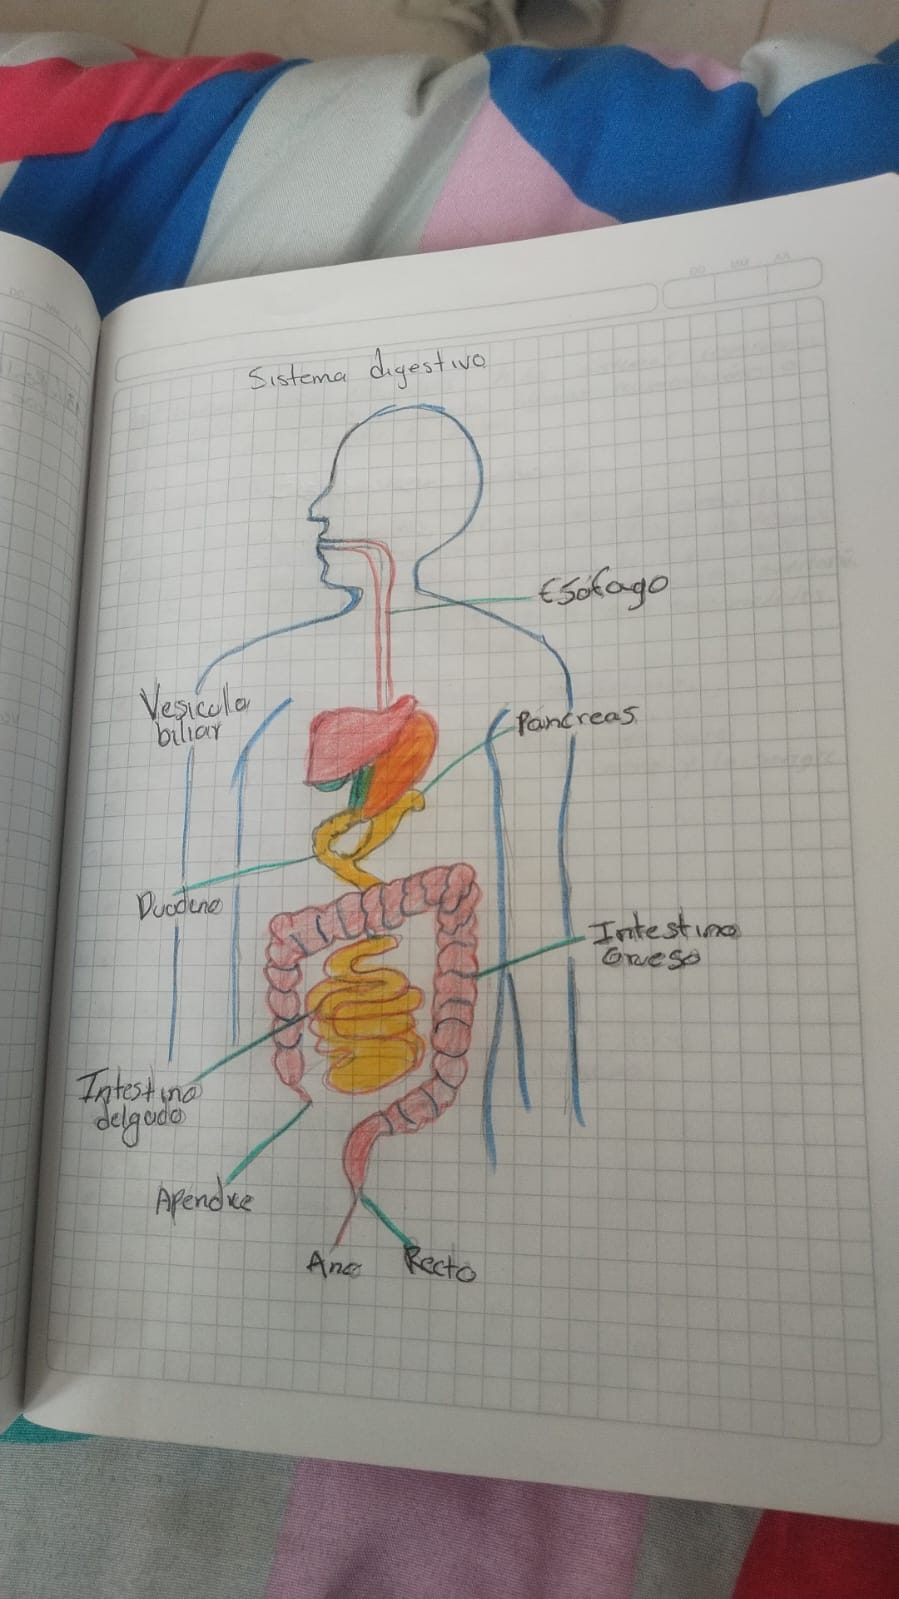 Sistema digestivo
Esófago
Vesicula
biliar
Pancreas
Duodeno
Intestino
Grueso
Intestino
delgado
Apendice
Ano
Recto